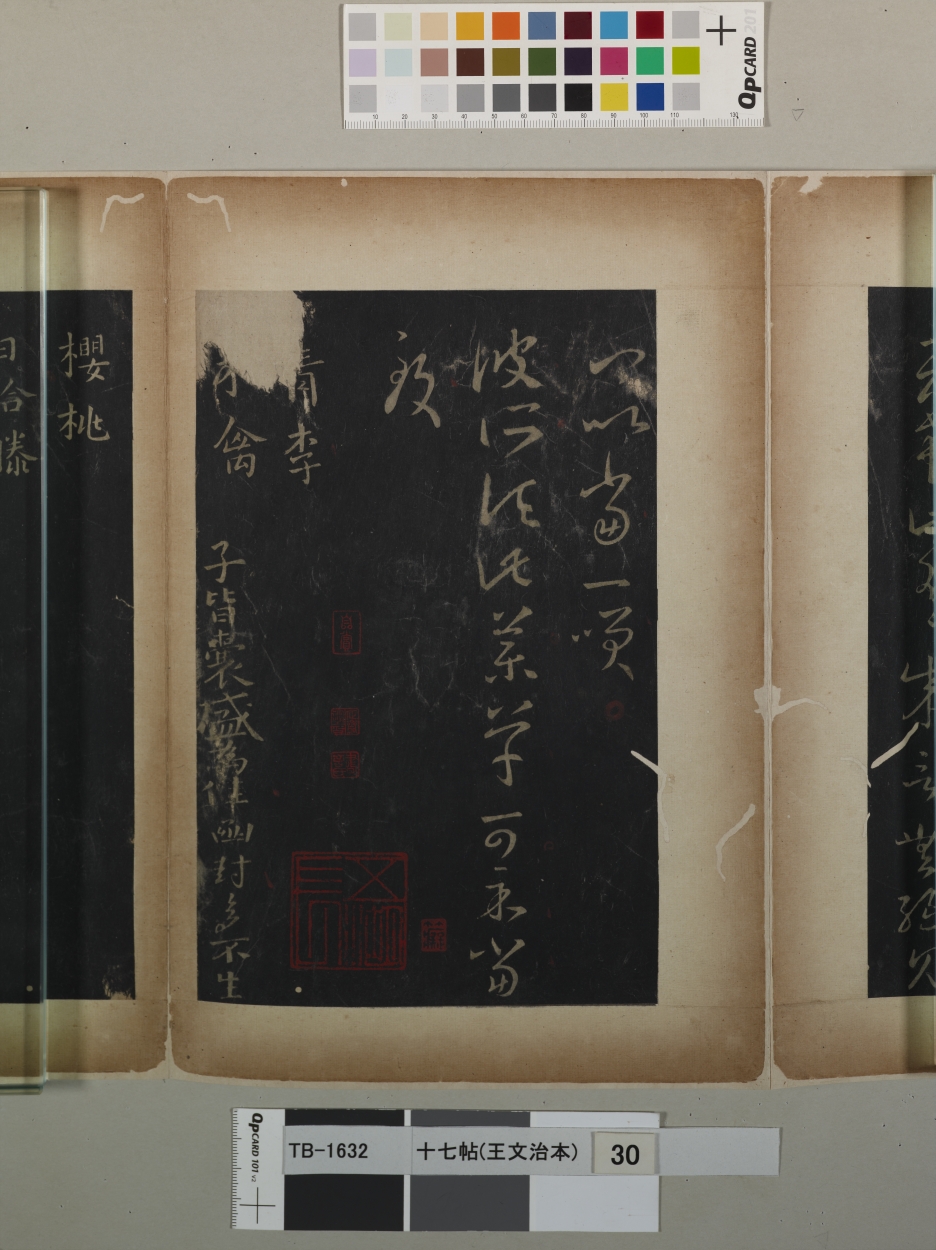 QpCARD 201
10 20 30 40 50 60 70 80 90 100 110 130
成言無緣見
卿以當一笑
彼所須此藥草可示當
致
青李
來禽
子皆囊盛為佳函封多不生
櫻桃
日給滕
QpCARD 101 v2
TB-1632
十七帖(王文治本)
30